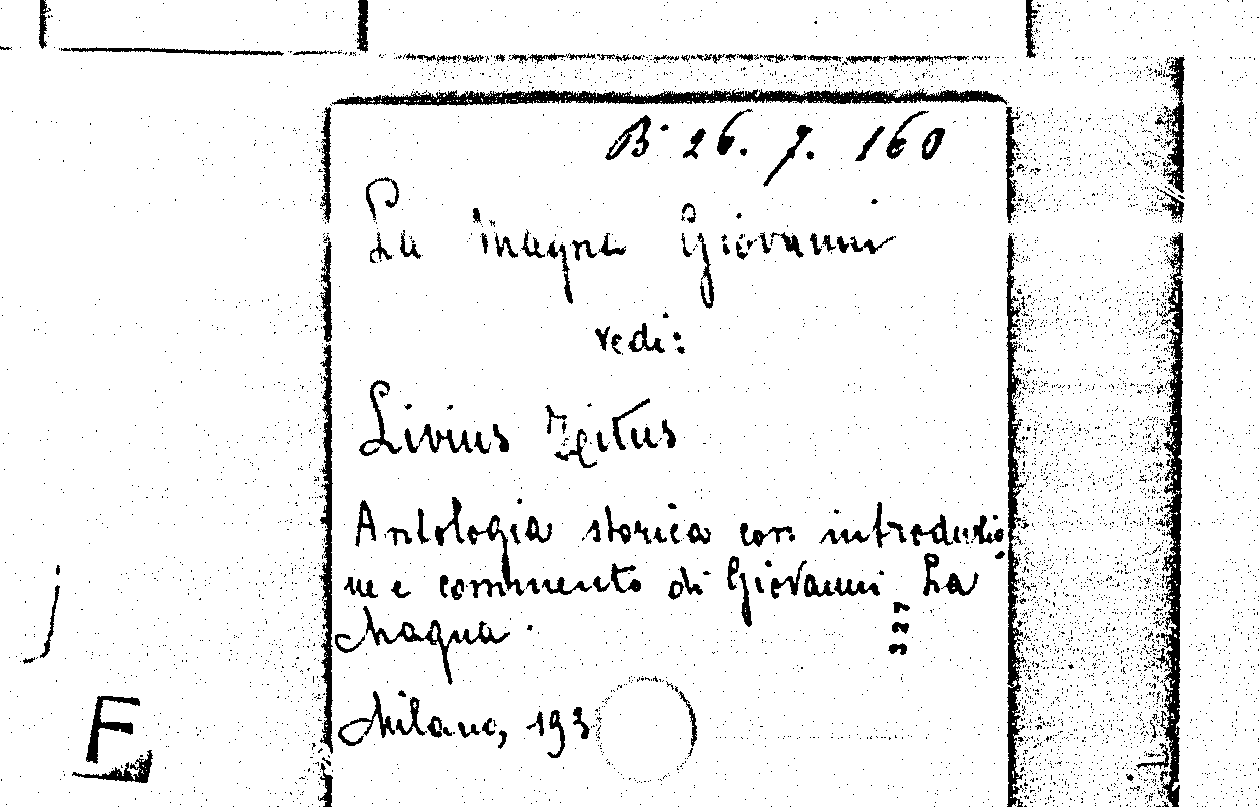 B 26. 7. 160
La Magna Giovanni
vedi:
Livius Titus
Antologia storica con introduzio
ne e commento di Giovanni La
Magna.
327
Milano, 193
j
F